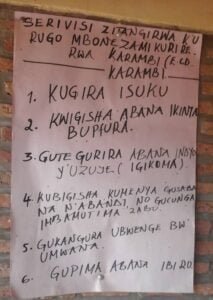 SERIVISI ZITANGIRWA KU
RUGO MBONEZAMIKURIRE
RWA KARAMBI (E.C.D.
KARAMBI.
1. KUGIRA ISUKU
2. KWIGISHA ABANA IKINYA
BUPFURA.
3. GUTEGURIRA ABANA INDYO
Y'UZUYE (IGIKOMA).
4. KUBIGISHA KUMENYA GUSABA
NA N'ABANDI, NO GUCUNGA
IMBAMUTIMA ZABU.
5. GUKANGURA UBWENGE BW'
UMWANA.
6. GUPIMA ABANA IBIRO.